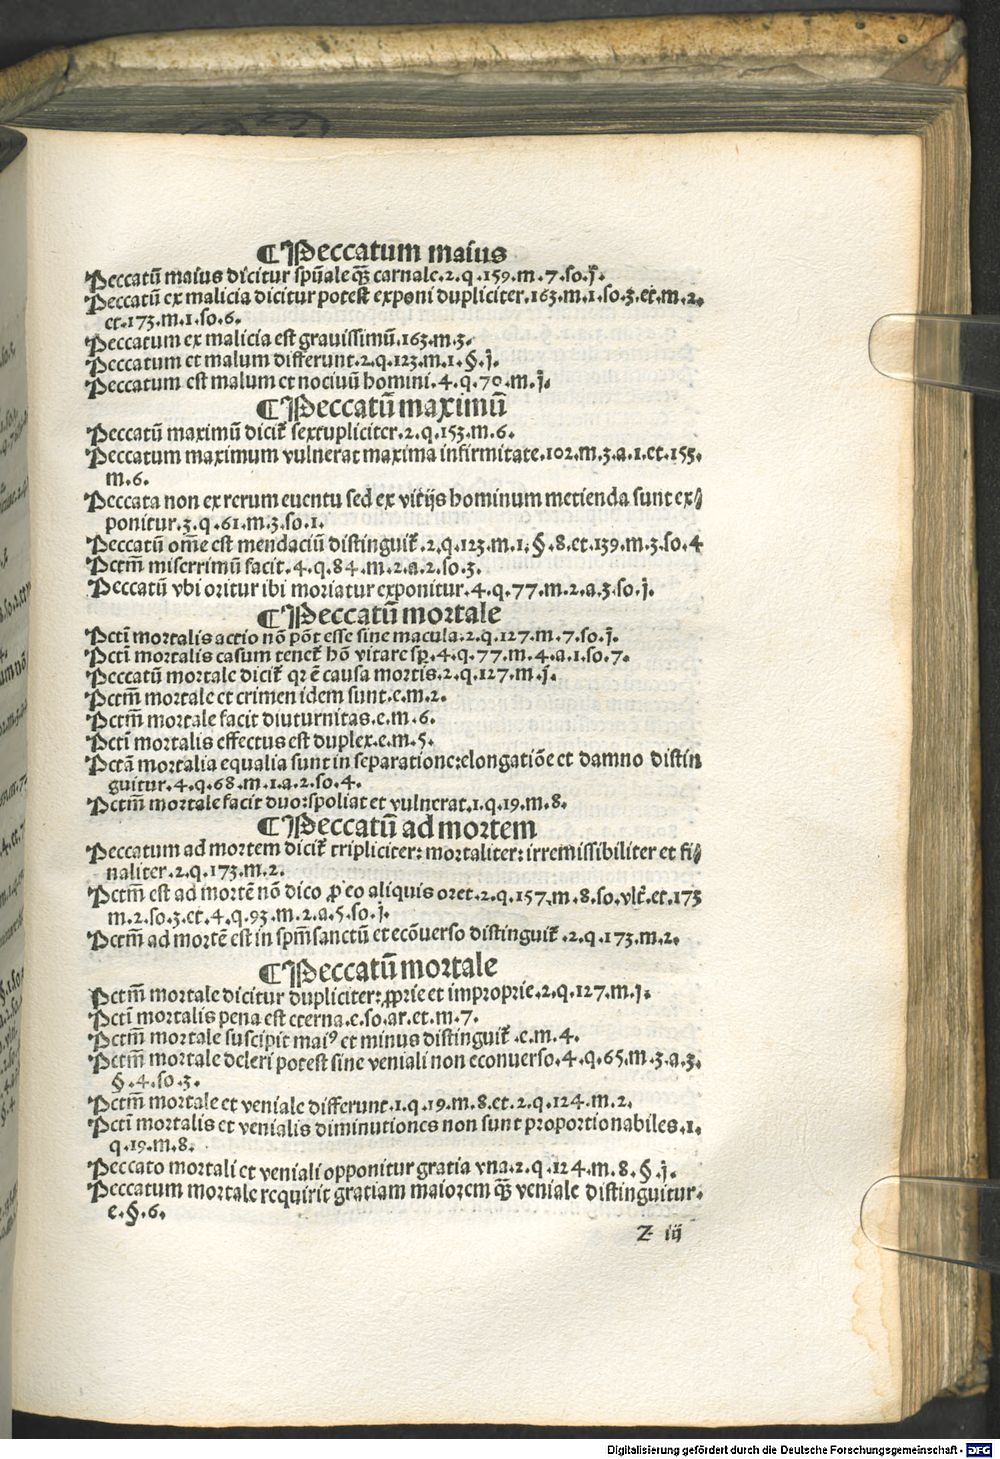 ¶ Peccatum maius
Peccatū maius dicitur spūale q̄ȝ carnale.2.q.159.m.7.so.j.
Peccatū ex malicia dicitur potest exponi dupliciter.163.m.1.so.3.et.m.2.
et.173.m.1.so.6.
Peccatum ex malicia est grauissimū.163.m.3.
Peccatum et malum differunt.2.q.123.m.1.§.j.
Peccatum est malum et nociuū homini.4.q.70.m.j.
¶ Peccatū maximū
Peccatū maximū dicit̄ sextupliciter.2.q.153.m.6.
Peccatum maximum vulnerat maxima infirmitate.102.m.3.a.1.et.155.
m.6.
Peccata non ex rerum euentu sed ex vitijs hominum metienda sunt ex⸗
ponitur.3.q.61.m.3.so.1.
Peccatū om̄e est mendaciū distinguit̄.2.q.123.m.1.§.8.et.139.m.3.so.4
Pctm̄ miserrimū facit.4.q.84.m.2.a.2.so.3.
Peccatū vbi oritur ibi moriatur exponitur.4.q.77.m.2.a.3.so.j.
¶ Peccatū mortale
Pcti̅ mortalis actio nō pōt esse sine macula.2.q.127.m.7.so.j.
Pcti̅ mortalis casum tenet̄ hō vitare sp̄.4.q.77.m.4.a.1.so.7.
Peccatū mortale dicit̄ qr ē causa mortis.2.q.127.m.j.
Pctm̄ mortale et crimen idem sunt.e.m.2.
Pctm̄ mortale facit diuturnitas.e.m.6.
Pcti̅ mortalis effectus est duplex.e.m.5.
Pctā mortalia equalia sunt in separatione:elongatiōe et damno distin
guitur.4.q.68.m.1.a.2.so.4.
Pctm̄ mortale facit duo:spoliat et vulnerat.1.q.19.m.8.
¶ Peccatū ad mortem
Peccatum ad mortem dicit̄ tripliciter: mortaliter: irremissibiliter et fi⸗
naliter.2.q.173.m.2.
Pctm̄ est ad mortē nō dico ꝓ eo aliquis oret.2.q.157.m.8.so.vlt̄.et.173
m.2.so.3.et.4.q.93.m.2.a.5.so.j.
Pctm̄ ad mortē est in spm̄sanctū et ecōuerso distinguit̄.2.q.173.m.2.
¶ Peccatū mortale
Pctm̄ mortale dicitur dupliciter: ꝓprie et improprie.2.q.127.m.j.
Pcti̅ mortalis pena est eterna.e.so.ar.et.m.7.
Pctm̄ mortale suscipit maiꝰ et minus distinguit̄.e.m.4.
Pctm̄ mortale deleri potest sine veniali non econuerso.4.q.65.m.3.a.3.
§.4.so.3.
Pctm̄ mortale et veniale differunt.1.q.19.m.8.et.2.q.124.m.2.
Pcti̅ mortalis et venialis diminutiones non sunt proportionabiles.1.
q.19.m.8.
Peccato mortali et veniali opponitur gratia vna.2.q.124.m.8.§.j.
Peccatum mortale requirit gratiam maiorem q̄ȝ veniale distinguitur.
e.§.6.
Z iij
Digitalisierung gefördert durch die Deutsche Forschungsgemeinschaft - DFG